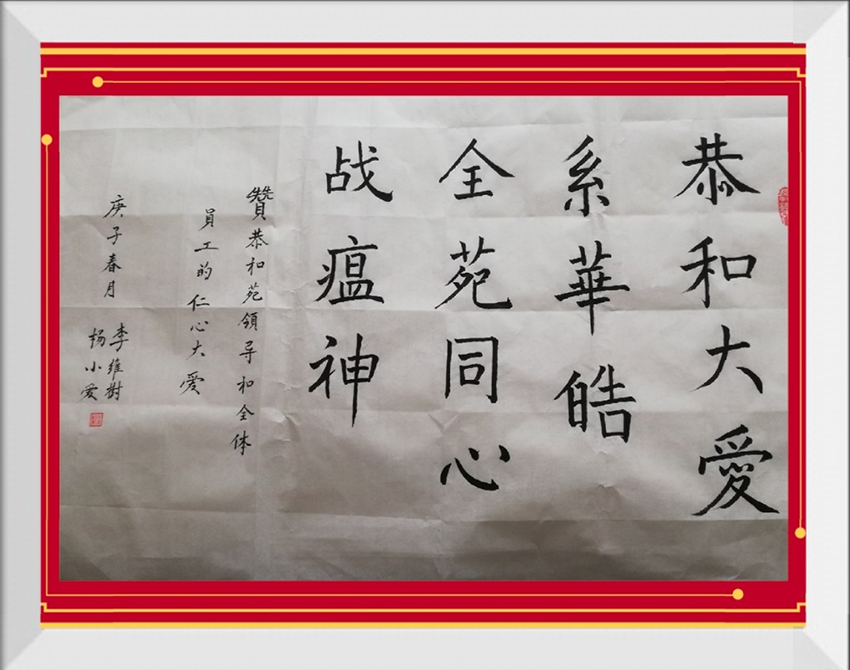 恭和大愛
系華皓
全苑同心
战瘟神
贊恭和苑領导和全体
員工的仁心大爱
庚子春月
李維樹
杨小爱